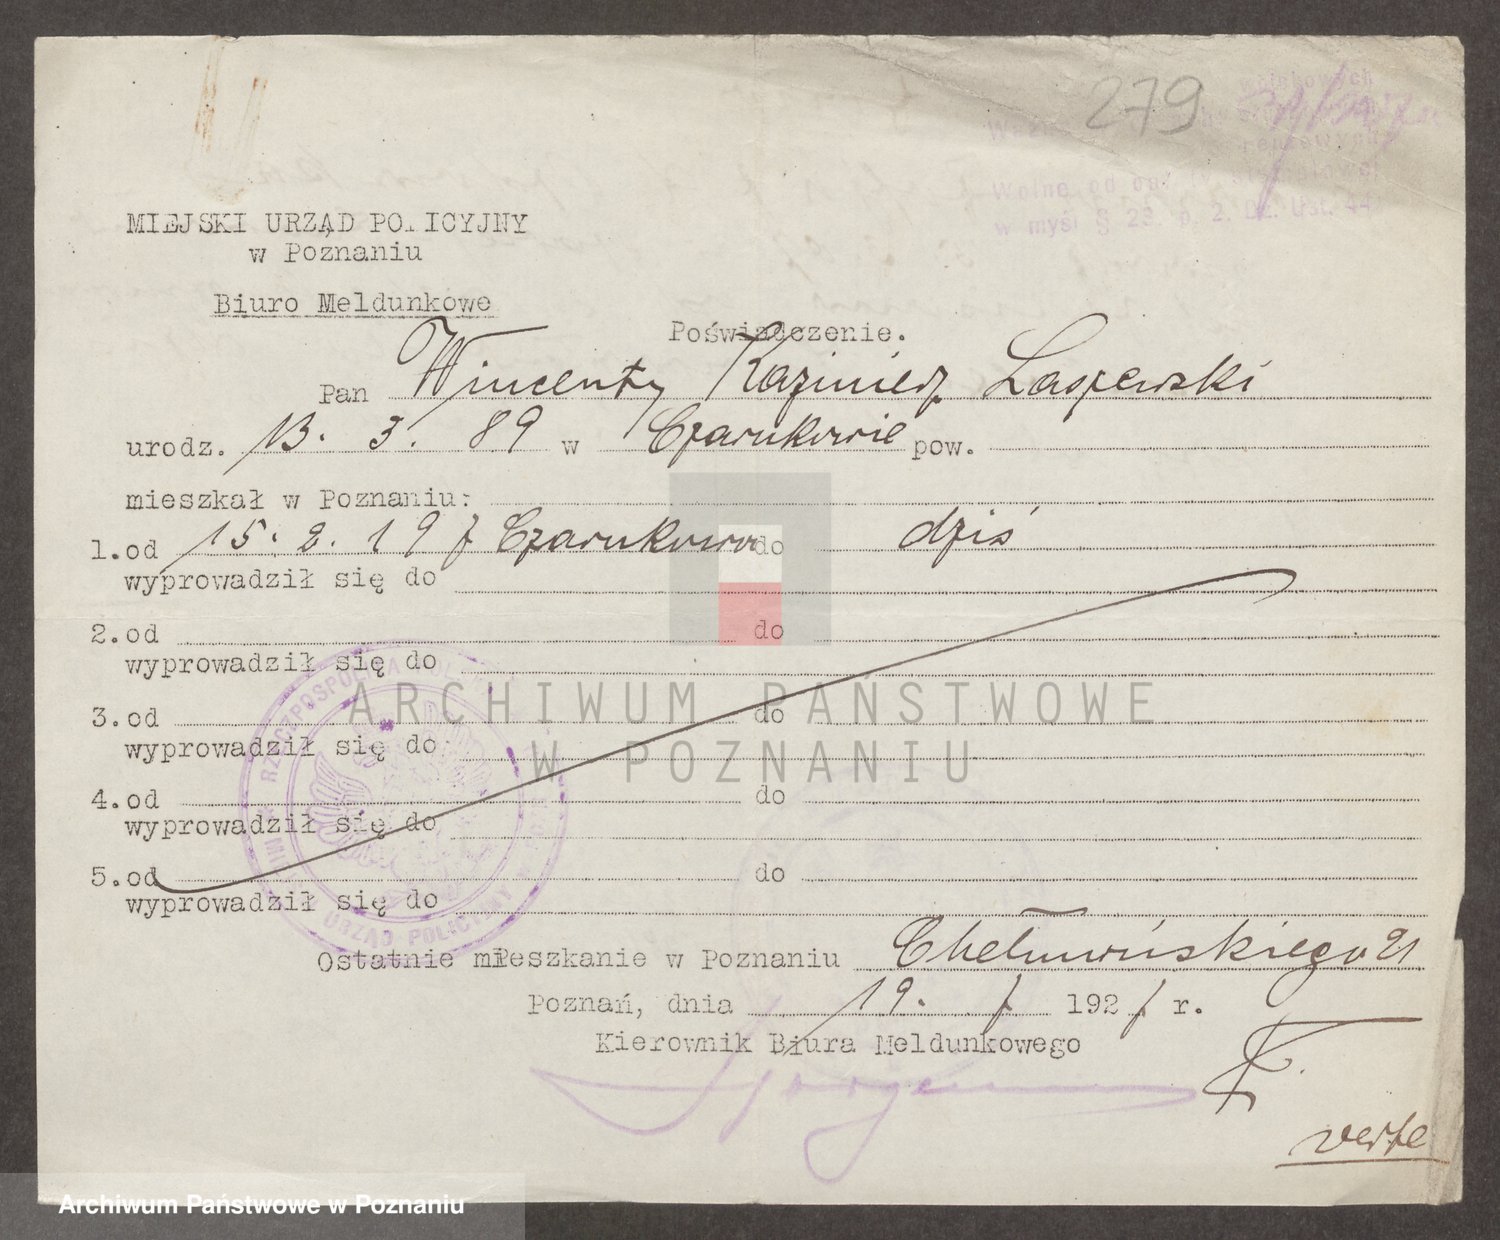 279
Wolne od opłaty stemplowej
w myśl § 23. p. 2. Dz. Ust. 44
MIEJSKI URZĄD POLICYJNY
w Poznaniu
Biuro Meldunkowe
Poświadczenie.
Pan Wincenty Kazimierz Laszewski
urodz. 13. 3. 89 w Czarnkowie pow.
mieszkał w Poznaniu:
1.od 15. 2. 19 7 Czarnkowa do dziś
wyprowadził się do
2.od do
wyprowadził się do
3.od do
wyprowadził się do
4.od do
wyprowadził się do
5.od do
wyprowadził się do
RZECZPOSPOLITA POLSKA
URZĄD POLICYJNY
Ostatnie mieszkanie w Poznaniu Chełmońskiego 21
Poznań, dnia 19. 7 1927 r.
Kierownik Biura Meldunkowego
verte
ARCHIWUM PAŃSTWOWE
W POZNANIU
Archiwum Państwowe w Poznaniu